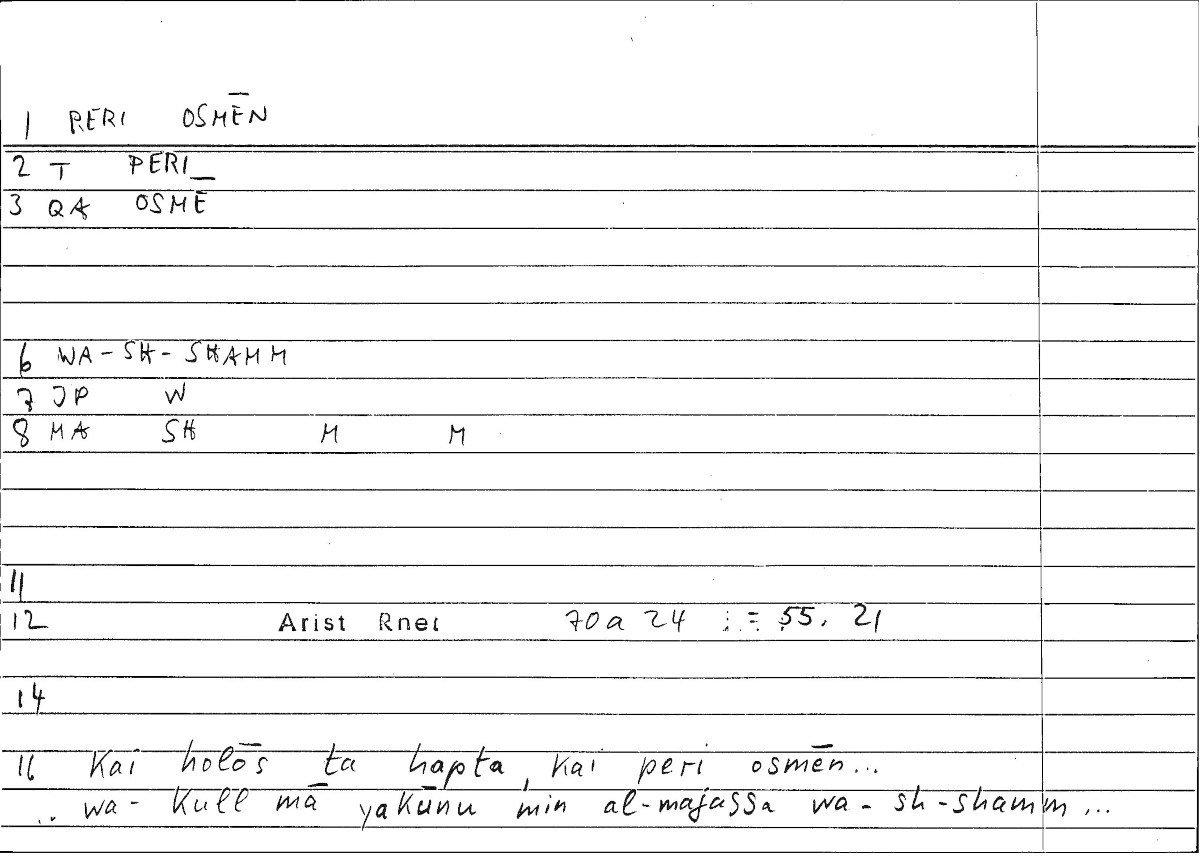 1 PERI OSMĒN
2 T PERI_
3 QA OSMĒ
6 WA-SH-SHAMM
7 JP W
8 MA SH M M
11
12 Arist Rhet 70a 24 := 55, 21
14
16 Kai holōs ta hapta, kai peri osmēn...
.. wa-kull mā yakūnu min al-majassa wa-sh-shamm...